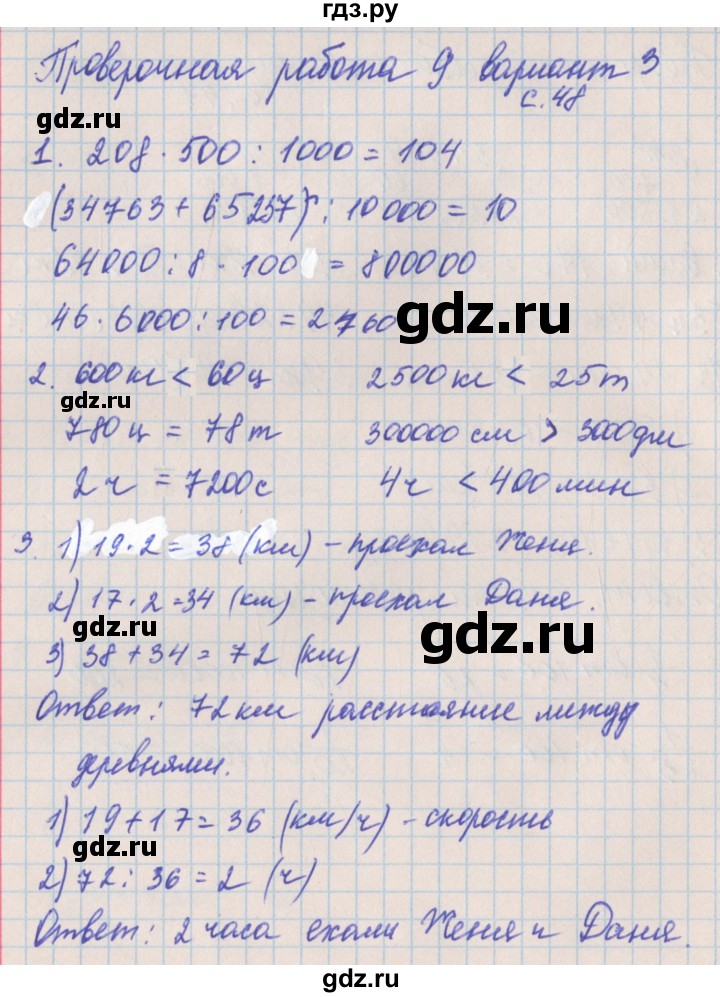 гдз.ру
Проверочная работа 9 вариант 3
с. 48
gdz.ru
1. 208 · 500 : 1000 = 104
(34763 + 65237) : 10000 = 10
64000 : 8 · 100 = 800000
46 · 6000 : 100 = 2760
gdz.ru
2. 600 кг < 60 ц 2500 кг < 25 т
gdz.ru
780 ц = 78 т 300000 см > 3000 дм
2 ч = 7200 с 4 ч < 400 мин
3. 1) 19 · 2 = 38 (км) - проехал Женя.
2) 17 · 2 = 34 (км) - проехал Даня.
gdz.ru
gdz.ru
3) 38 + 34 = 72 (км)
Ответ: 72 км расстояние между
деревнями.
1) 19 + 17 = 36 (км/ч) - скорость
gdz.ru
2) 72 : 36 = 2 (ч)
Ответ: 2 часа ехали Женя и Даня.
gdz.ru